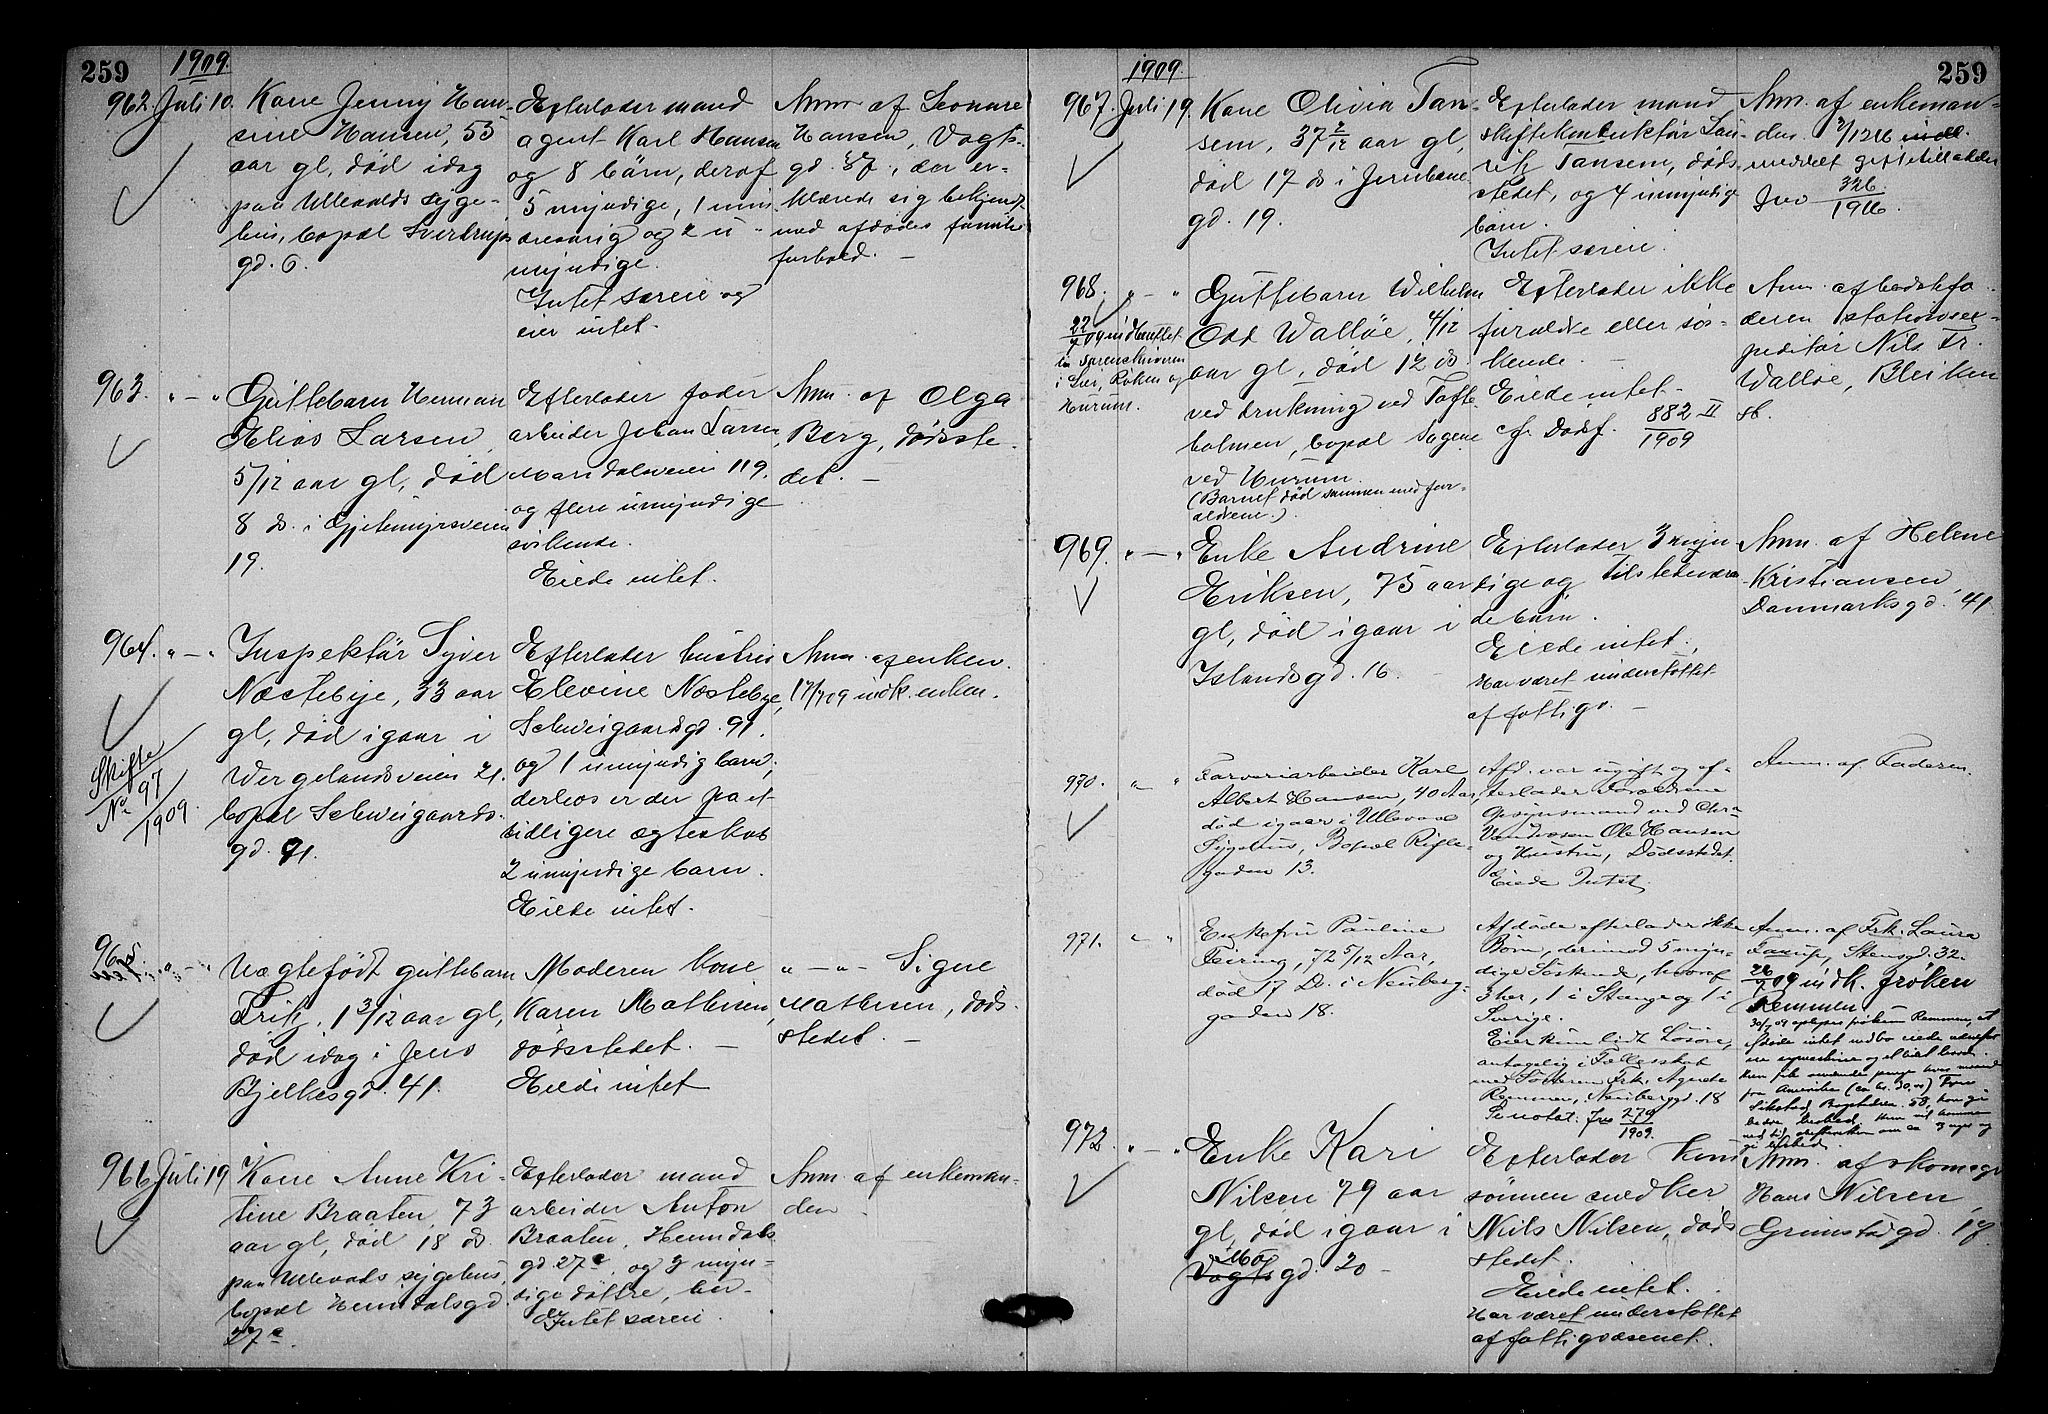 259
1909.
962. Juli 10.
Kone Jenny Han-
sine Hansen, 55
aar gl, død idag
paa Ullevolds syge-
hus, bopæl Sverdrups
gd. 6.
Efterlader mand
agent Karl Hansen
og 8 børn, deraf
5 myndige, 1 min
dreaarig og 2 u
myndige.
Intet særeie og
eier intet.
Anm. af Leonore
Hansen, Vogts.
gd. 37, der er-
klærede sig bekjendt
med afdødes familie
forhold. —
963. " — "
Guttebarn Herman
Elias Larsen,
5/12 aar gl, død
8 ds. i Gjetemyrsveien
19.
Efterlader fader
arbeider Johan Larsen,
Maridalsveien 119.
og flere umyndige
søskende.
Eiede intet.
Anm. af Olga
Berg, dødsste-
det. —
964. " — "
Skifte
No 97
1909.
Inspektør Syver
Næstebye, 33 aar
gl, død igaar i
Wergelandsveien 21.
bopæl Schweigaards-
gd. 91.
Efterlader hustru
Elevine Næstebye,
Schweigaardsgd. 91.
og 1 umyndig barn,
derhos er der paa et
tidligere ægteskab
2 umyndige barn.
Eiede intet.
Anm. af enken.
17/7 09 indk. enken.
965. " — "
Uægtefødt guttebarn
Fritz, 1 3/12 aar gl,
død idag i Jens
Bjelkesgd. 41.
Moderen kone
Karen Mathisen,
dødsstedet. —
Eiede intet
" — " Signe
Mathisen, døds-
stedet. —
966 Juli 19
Kone Anne Kri-
stine Braaten, 73
aar gl, død 18 ds.
paa Ullevols sygehus,
bopæl Heimdalsgd.
27 c.
Efterlader mand
arbeider Anton
Braaten, Heimdals
gd 27 c, og 3 myn-
dige døttre, her.
Intet særeie.
Anm. af enkeman-
den.
259
1909.
967. Juli 19.
Kone Olivia Tan-
sem, 37 2/12 aar gl,
død 17 ds i Jernbane
gd. 19.
Efterlader mand
Lau-
ritz Tansem, døds-
stedet, og 4 umyndige
børn.
Intet særeie.
Anm. af enkeman-
den.
meddelt giftetilladelse
Jno 326
1916.
968. " — "
22/7 09 indberettet
til sorenskriveren
i Lier, Røken og
Hurum.
Guttebarn Wilhelm
Odd Walløe, 4/12
aar gl, død 12 ds.
ved drukning ved Tofte
holmen, bopæl Sagene
ved Hurum.
(Barnet død sammen med for-
ældrene.)
Efterlader ikke
forældre eller søs-
kende. —
Eiede intet.
cfr. Dødsf. 882 II
1909
Anm. af bedstefa-
deren stationsex-
peditør Nils Fr.
Walløe, Bleiken
st.
969. " — "
Enke Andrine
Eriksen, 75 aar
gl, død igaar i
Islandsgd. 16.
Efterlader 3 myn
dige og tilstedeværen
de børn.
Eiede intet.
Har været understøttet
af fattigv. —
Anm. af Helene
Kristiansen
Danmarksgd. 41.
970. " — "
Farveriarbeider Karl
Albert Hansen, 40 Aar,
død igaar i Ullevaal
Sygehus, Bopæl Rifle-
gaden 13.
Afd. var ugift og ef-
terlader Forældrene
Opsynsmand ved Chra
Vandvæsen Ole Hansen
og Hustru, Dødsstedet.
Eiede Intet.
Anm. af Faderen.
971. " — "
Enkefru Pauline
Feiring, 72 5/12 Aar,
død 17 Ds. i Neuberg-
gaden 18.
Afdøde efterlader ikke
Børn, derimod 5 myn-
dige Søskende, hvoraf
3 her, 1 i Stange og 1 i
Sverige.
Eier kun lidt Løsøre,
antagelig i Fællesskab
med Søsteren Frk. Agnete
Remmen, Neuberggd. 18
Se notat: Jno 279
1909.
Anm. af Frk. Laura
Stensgd. 32.
26/7 09 indk. frøken
Remmen.
30/7 09 oplyser frøken Remmen, at
afdøde intet indbo eiede
en symaskine og et lidet bord.
fra Amerika (ca kr. 30,00)
972. " — "
Enke Kari
Nilsen 79 aar
gl, død igaar i
Vogts gd. 20 —
Efterlader kun
sønnen snedker
Nils Nilsen, døds
stedet.
Eiede intet.
Har været understøttet
af fattigvæsenet.
Anm. af skomagr
Hans Nilsen,
Grimstadgd. 19.